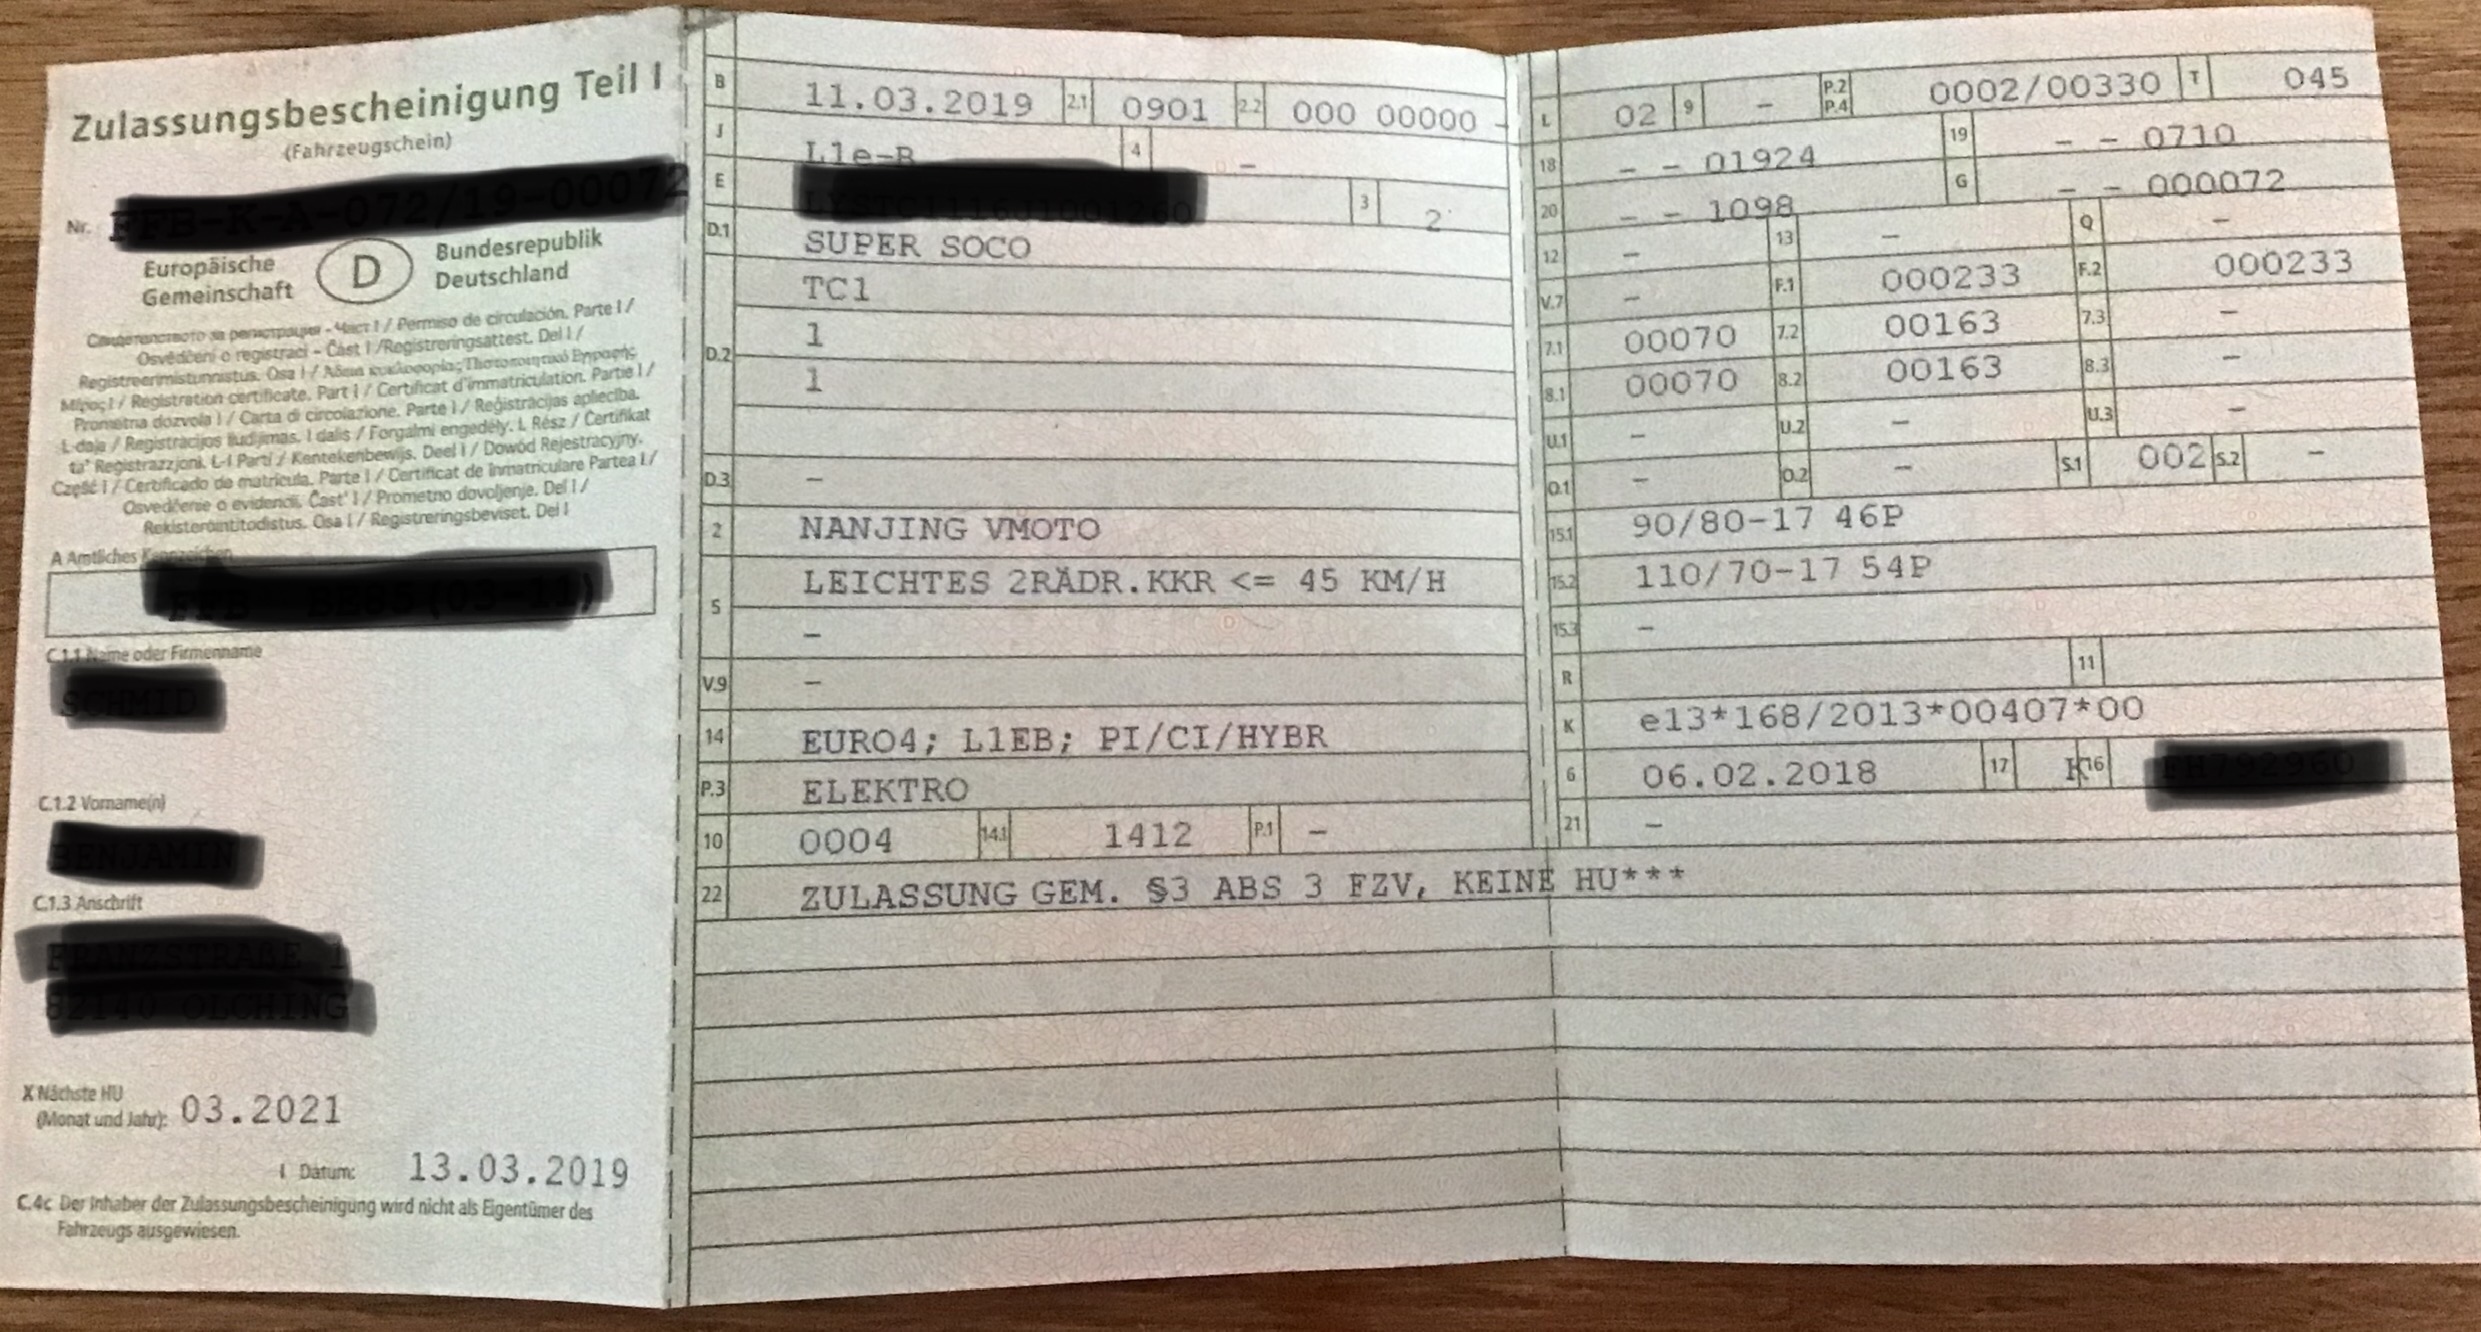 Zulassungsbescheinigung Teil I
(Fahrzeugschein)
Nr.
Europäische Gemeinschaft
D
Bundesrepublik Deutschland
Част I / Permiso de circulación. Parte I /
Osvědčení o registraci – Část I /Registreringsattest. Del I /
Registreerimistunnistus. Osa I /
Registration certificate. Part I / Certificat d'immatriculation. Partie I /
Prometna dozvola I / Carta di circolazione. Parte I / Reģistrācijas apliecība.
I. daļa / Registracijos liudijimas. I dalis / Forgalmi engedély. I. Rész / Ċertifikat
ta' Reġistrazzjoni. L-I Parti / Kentekenbewijs. Deel I / Dowód Rejestracyjny.
Część I / Certificado de matrícula. Parte I / Certificat de înmatriculare Partea I /
Osvedčenie o evidencii. Časť I / Prometno dovoljenje. Del I /
Rekisteröintitodistus. Osa I / Registreringsbeviset. Del I
A Amtliches Kennzeichen
C.1.1 Name oder Firmenname
C.1.2 Vorname(n)
C.1.3 Anschrift
X Nächste HU
(Monat und Jahr): 03.2021
I Datum: 13.03.2019
C.4c Der Inhaber der Zulassungsbescheinigung wird nicht als Eigentümer des
Fahrzeugs ausgewiesen.
B 11.03.2019 2.1 0901 2.2 000 00000 -
J L1e-B 4 –
E 3 2
D.1 SUPER SOCO
D.2 TC1
1
1
D.3 –
2 NANJING VMOTO
5 LEICHTES 2RÄDR.KKR <= 45 KM/H
–
V.9 –
14 EURO4; L1EB; PI/CI/HYBR
P.3 ELEKTRO
10 0004 14.1 1412 P.1 –
22 ZULASSUNG GEM. §3 ABS 3 FZV, KEINE HU***
L 02 9 – P.2 P.4 0002/00330 T 045
18 – – 01924 19 – – 0710
20 – – 1098 G – – 000072
12 – 13 – Q –
V.7 – F.1 000233 F.2 000233
7.1 00070 7.2 00163 7.3 –
8.1 00070 8.2 00163 8.3 –
U.1 – U.2 – U.3 –
O.1 – O.2 – S.1 002 S.2 –
15.1 90/80-17 46P
15.2 110/70-17 54P
15.3 –
R 11
K e13*168/2013*00407*00
6 06.02.2018 17 K 16
21 –